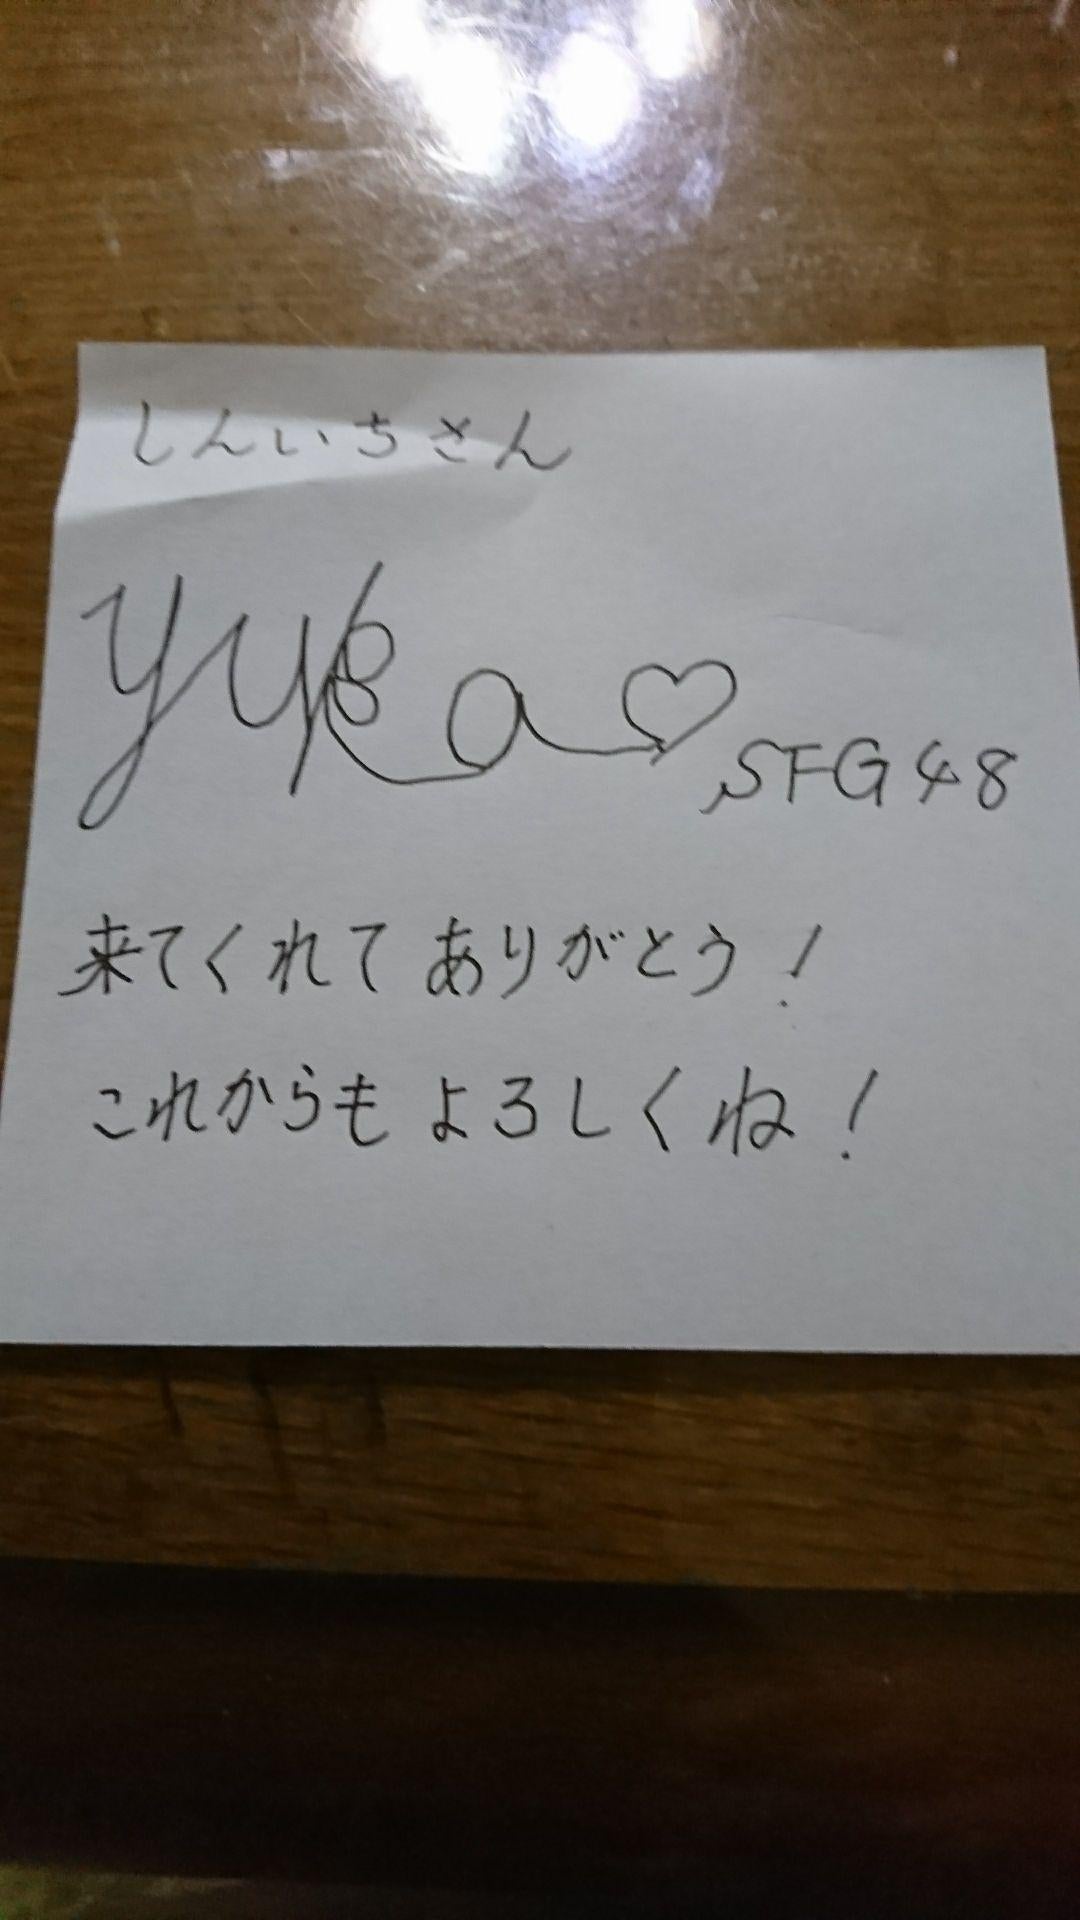 しんいちさん
yuka♡
SFG48
来てくれてありがとう!
これからもよろしくね!